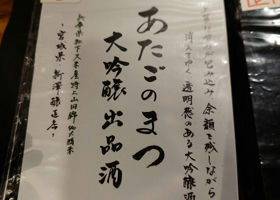 包み込み 余韻を残しながら
消えてゆく 透明感のある大吟醸酒
あたごのまつ
大吟醸出品酒
兵庫県 久米産特上山田錦
-宮城県 新澤醸造店-